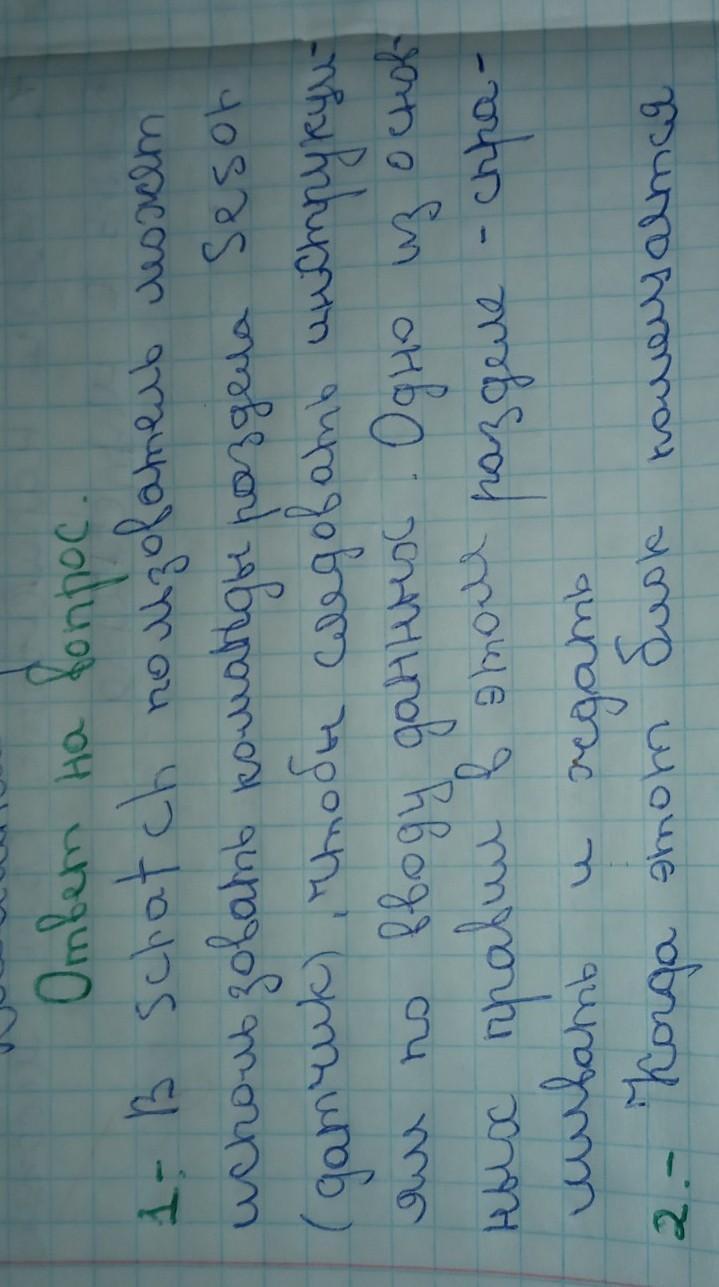 Ответ на вопрос.
1.- В Schatch пользователь может
использовать команды раздела Sesor
(датчик), чтобы следовать инструкци-
ям по вводу данных. Одно из основ-
ных правил в этом разделе - спра-
шивать и ждать
2.- "Когда этот блок помещается